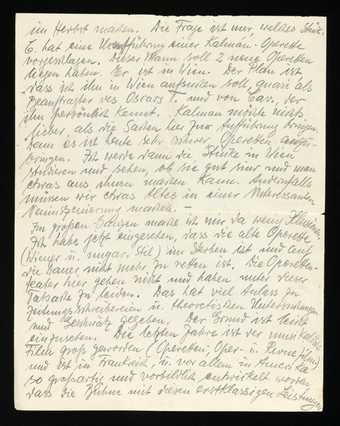 im Herbst machen. Die Frage ist nur, welches Stück.
E. hat eine Uraufführung einer Kálmán-Operette
vorgeschlagen. Dieser Mann soll 2 neue Operetten
liegen haben. Er ist in Wien. Der Plan ist
dass ich ihn in Wien aufsuchen soll, quasi als
Beauftragter des Oscars T. und von Ear., der
ihn persönlich kennt. Kalman möchte nichts
lieber, als die Sachen hier zur Aufführung bringen,
denn es ist heute sehr schwer Operetten
bringen. Ich werde dann die Stücke in Wien
studieren und sehen, ob sie gut sind und man
etwas aus ihnen machen kann. Andernfalls
müssen wir etwas Altes in einer interessanten
Neuinszenierung machen. –
Im großen Ganzen mache ich mir da keine Illusionen.
Ich habe jetzt eingesehen, dass die alte Operette
(Wiener u. ungar. Stil) im Sterben ist und auf
die Dauer nicht mehr zu retten ist. Die Operetten-
teater hier gehen nicht und haben unter dieser
Tatsache zu leiden. Das hat viel Anlass zu
Zeitungsschreibereien u. theoretischen
und Geschwätz gegeben. Der Grund ist leicht
einzusehen. Die letzten Jahre ist der
Film groß geworden, (Operetten, Oper- u. Revue films)
und ist in Frankreich u. vor allem in Amerika
so großartig und vorbildlich entwickelt worden
dass die Bühne mit diesen erstklassigen Leistungen